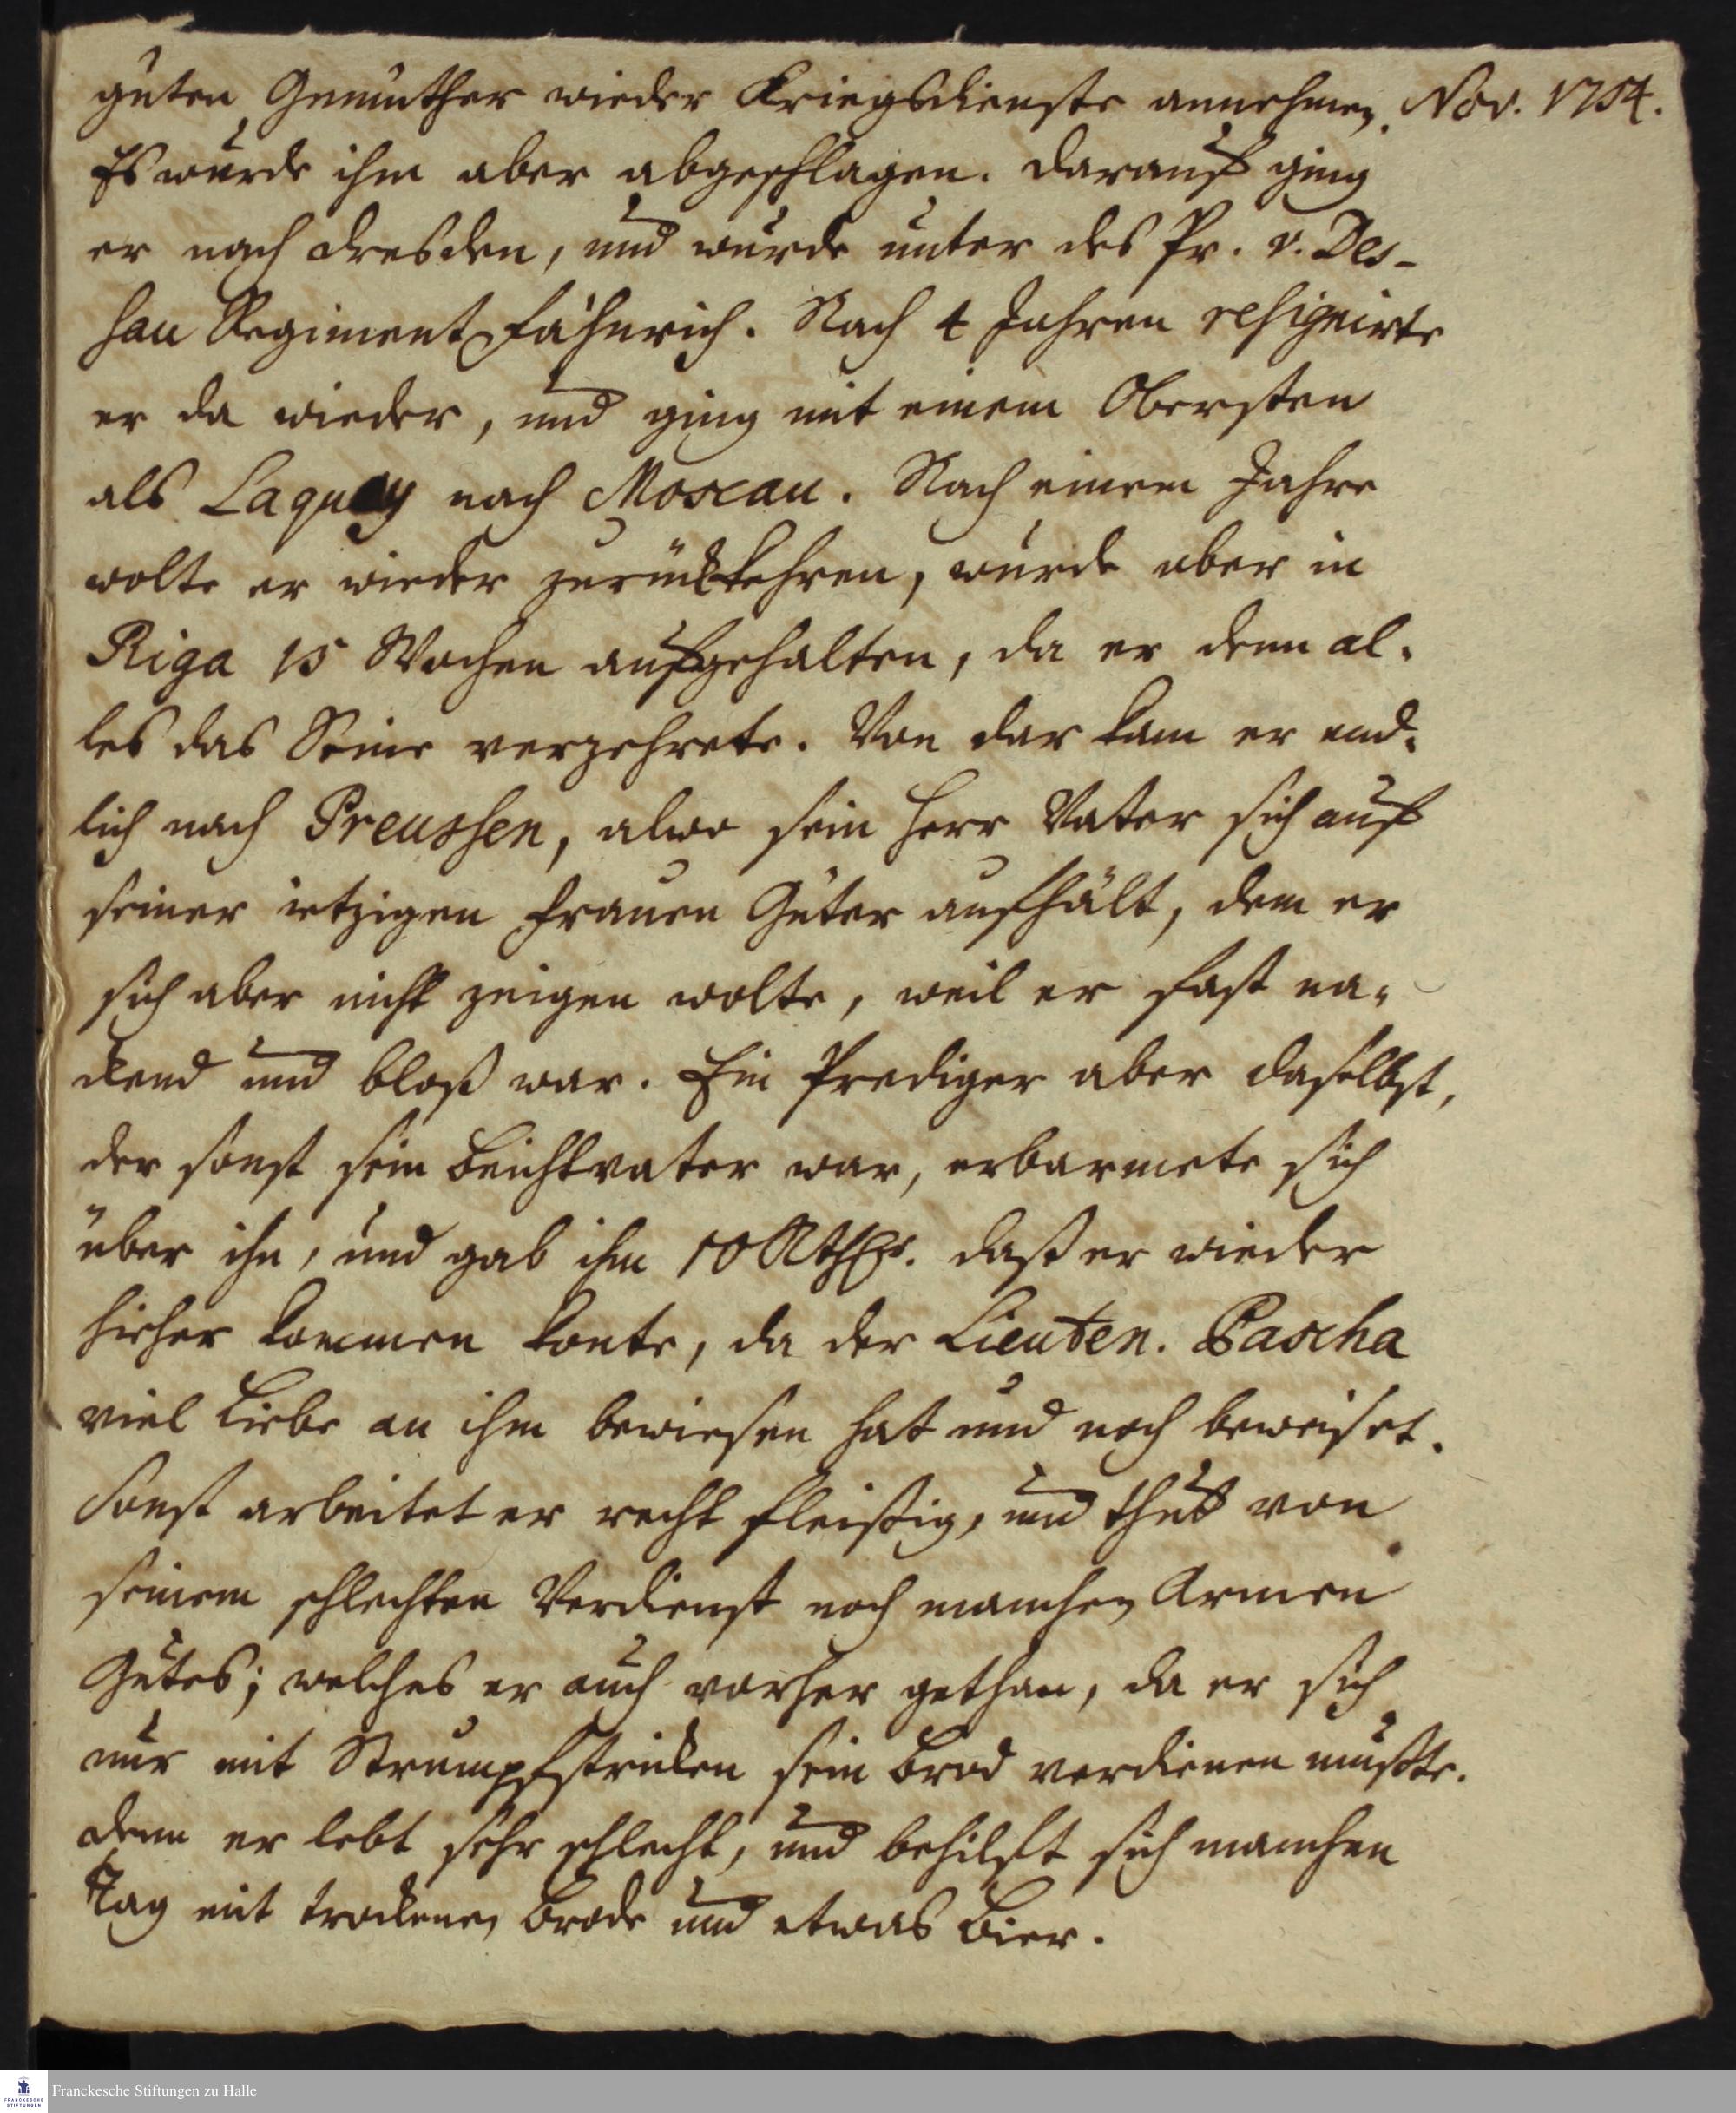 guten Gemüther wieder Kriegsdienste annehmen. Nov. 1754.
Es wurde ihm aber abgeschlagen. Darauf ging
er nach Dresden, und wurde unter des Pr. v. Des-
sau Regiment Fähnrich. Nach 4 Jahren resignirte
er da wieder, und ging mit einem Obersten
als Laquay nach Moscau. Nach einem Jahre
wolte er wieder zurückkehren, wurde aber in
Riga 15 Wochen aufgehalten, da er denn al-
les das Seine verzehrete. Von dar kam er end-
lich nach Preussen, alwo sein Herr Vater sich auf
seiner ietzigen Frauen Güter aufhält, dem er
sich aber nicht zeigen wolte, weil er fast na-
ckend und bloß war. Ein Prediger aber daselbst,
der sonst sein Beichtvater war, erbarmete sich
über ihn, und gab ihm 10 Rthlr. daß er wieder
hieher kommen konte, da der Lieuten. Pascha
viel Liebe an ihm bewiesen hat und noch beweiset.
Sonst arbeitet er recht fleißig, und thut von
seinem schlechten Verdienst noch manchen Armen
Gutes; welches er auch vorher gethan, da er sich
nur mit Strumpfstricken sein Brod verdienen mußte.
Denn er lebt sehr schlecht, und behilft sich manchen
Tag mit trockenen Brode und etwas Bier.
Franckesche Stiftungen zu Halle
FRANCKESCHE
STIFTUNGEN